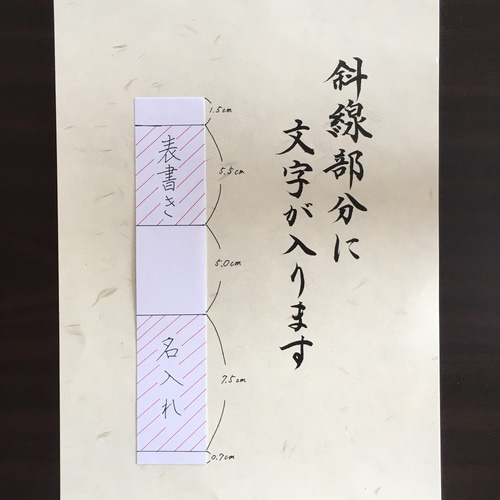 斜線部分に
文字が入ります
1.5cm
表書き
5.5cm
5.0cm
名入れ
7.5cm
0.7cm